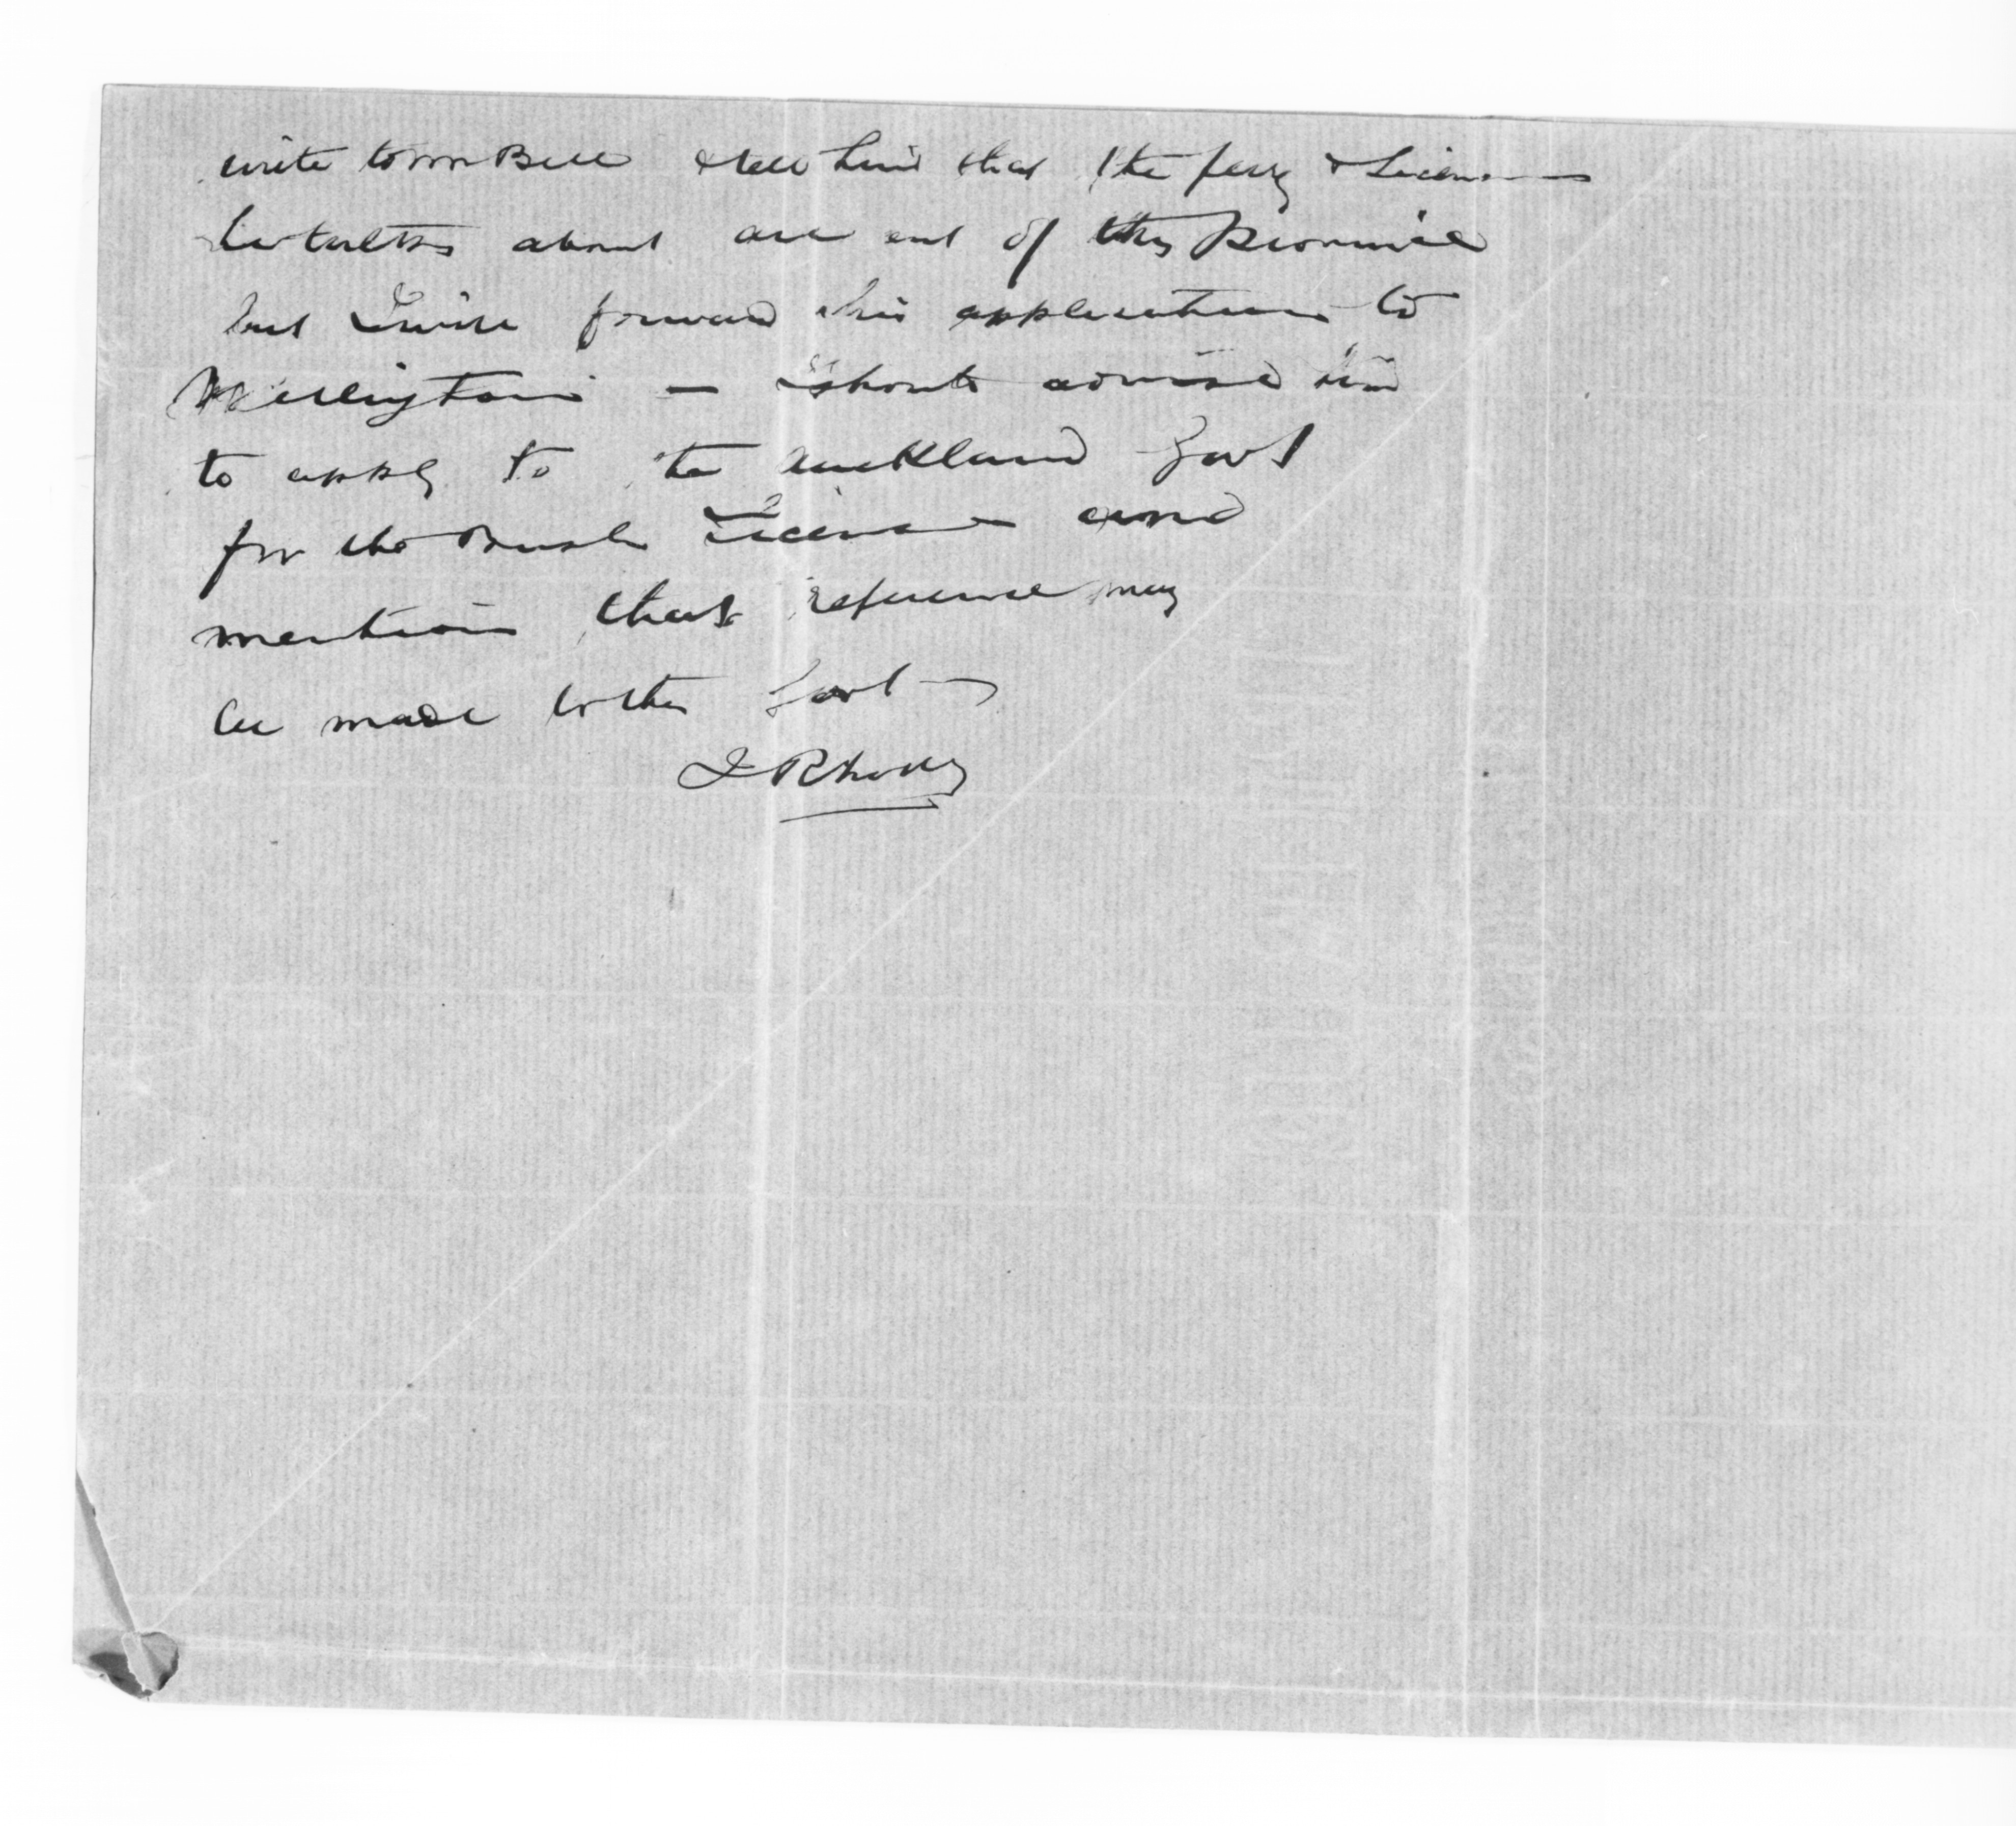 write to Mr Bell & tell him that the ferry & License
he talks about are out of this Province
but I will forward his application to
Wellington — I should advise him
to apply to the Auckland Govt
for the Bush License and
mention that reference may
be made to this Govt
J Rhodes